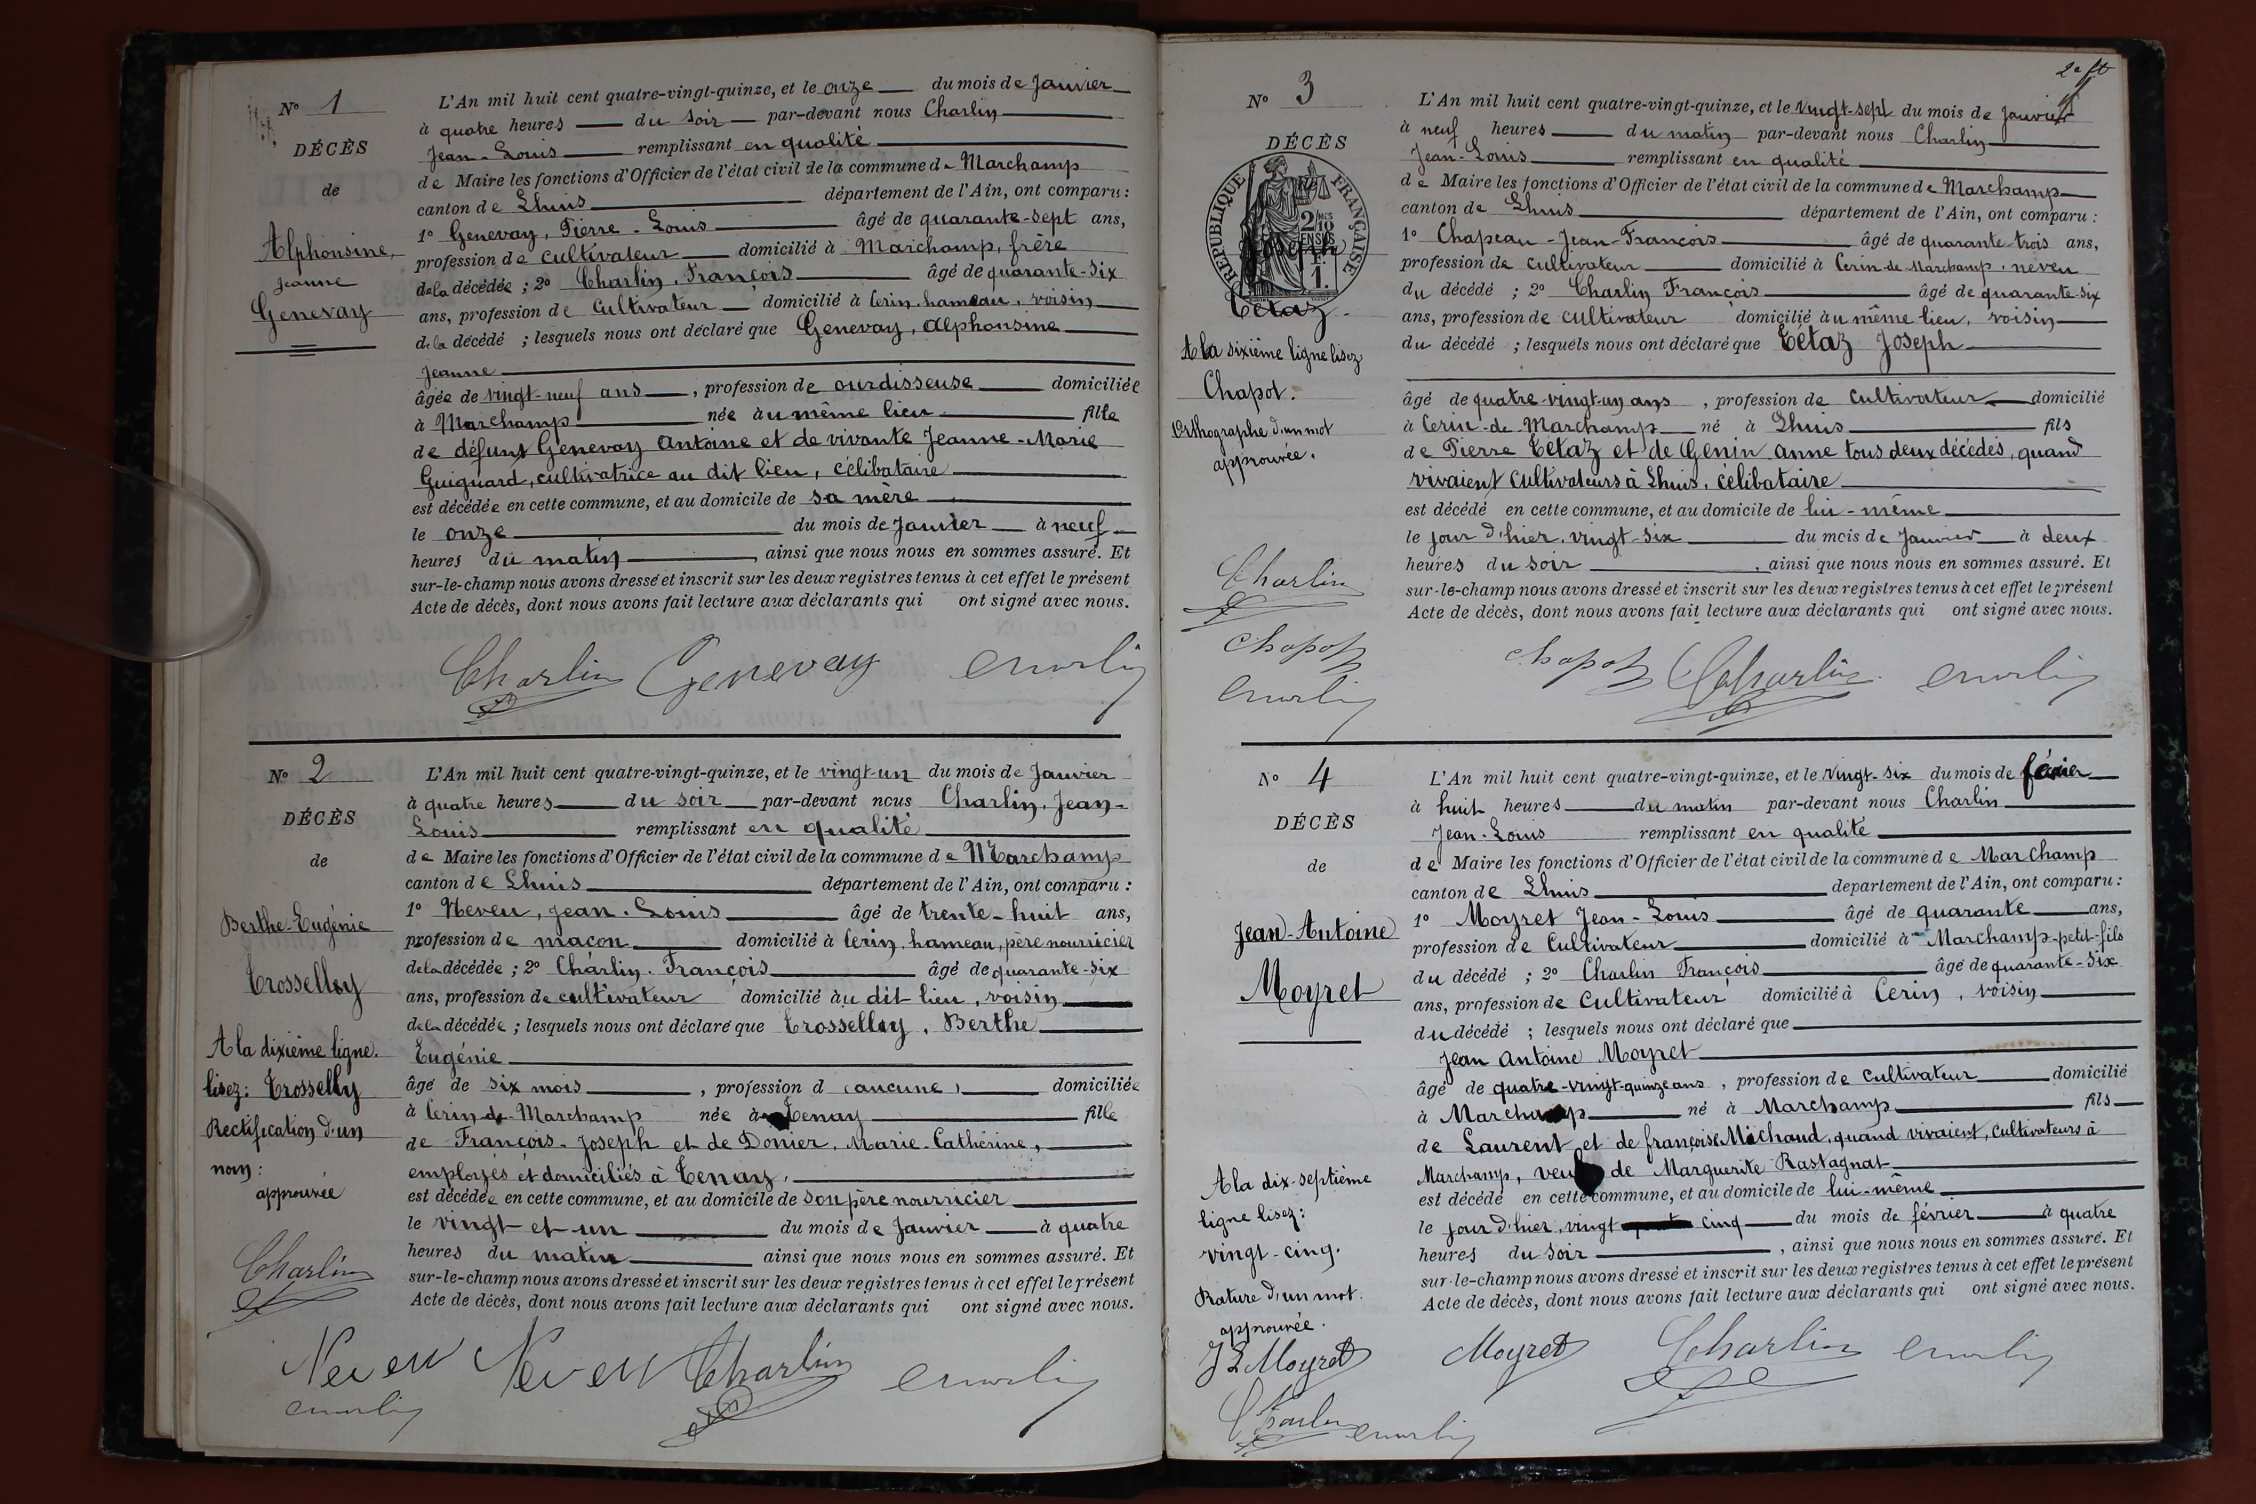 N° 1
DÉCÈS
de
Alphonsine,
Jeanne
Genevay
L'An mil huit cent quatre-vingt-quinze, et le onze du mois de Janvier
à quatre heures du soir par-devant nous Charlin
Jean-Louis remplissant en qualité
de Maire les fonctions d'Officier de l'état civil de la commune de Marchamp
canton de Lhuis département de l'Ain, ont comparu :
1° Genevay, Pierre-Louis âgé de quarante-sept ans,
profession de cultivateur domicilié à Marchamp, frère
de la décédée ; 2° Charlin, François âgé de quarante-six
ans, profession de cultivateur domicilié à Cerin, hameau, voisin
de la décédé ; lesquels nous ont déclaré que Genevay, Alphonsine
Jeanne
âgée de vingt-neuf ans, profession de ourdisseuse domiciliée
à Marchamp née au même lieu fille
de défunt Genevay Antoine et de vivante Jeanne-Marie
Guignard, cultivatrice au dit lieu, célibataire
est décédée en cette commune, et au domicile de sa mère
le onze du mois de Janvier à neuf
heures du matin, ainsi que nous nous en sommes assuré. Et
sur-le-champ nous avons dressé et inscrit sur les deux registres tenus à cet effet le présent
Acte de décès, dont nous avons fait lecture aux déclarants qui ont signé avec nous.
Charlin Genevay Charlin
N° 2
DÉCÈS
de
Berthe-Eugénie
Trosselloy
A la dixième ligne.
lisez : Trosselly
Rectification d'un
nom :
approuvée
Charlin
L'An mil huit cent quatre-vingt-quinze, et le vingt-un du mois de Janvier
à quatre heures du soir par-devant nous Charlin, Jean-
Louis remplissant en qualité
de Maire les fonctions d'Officier de l'état civil de la commune de Marchamp
canton de Lhuis département de l'Ain, ont comparu :
1° Neveu, Jean-Louis âgé de trente-huit ans,
profession de maçon domicilié à Cerin, hameau, père nourricier
de la décédée ; 2° Charlin, François âgé de quarante-six
ans, profession de cultivateur domicilié au dit lieu, voisin
de la décédée ; lesquels nous ont déclaré que Trosselloy, Berthe
Eugénie
âgé de six mois, profession d (aucune) domiciliée
à Cerin-de-Marchamp née à Tenay fille
de François-Joseph et de Donier, Marie-Cathérine,
employés et domiciliés à Tenay,
est décédée en cette commune, et au domicile de son père nourricier
le vingt-et-un du mois de Janvier à quatre
heures du matin ainsi que nous nous en sommes assuré. Et
sur-le-champ nous avons dressé et inscrit sur les deux registres tenus à cet effet le présent
Acte de décès, dont nous avons fait lecture aux déclarants qui ont signé avec nous.
Neveu Neveu Charlin Charlin
Charlin
2e ft
N° 3
DÉCÈS
RÉPUBLIQUE FRANÇAISE
2/10 EN SUS
1
Joseph
Tétaz
A la sixième ligne lisez
Chapot.
Orthographe d'un mot
approuvée.
Charlin
Chapot
Charlin
L'An mil huit cent quatre-vingt-quinze, et le vingt-sept du mois de Janvier
à neuf heures du matin par-devant nous Charlin
Jean-Louis remplissant en qualité
de Maire les fonctions d'Officier de l'état civil de la commune de Marchamp
canton de Lhuis département de l'Ain, ont comparu :
1° Chapeau-Jean-François âgé de quarante-trois ans,
profession de cultivateur domicilié à Cerin-de-Marchamp, neveu
du décédé ; 2° Charlin François âgé de quarante-six
ans, profession de cultivateur domicilié au même lieu, voisin
du décédé ; lesquels nous ont déclaré que Tétaz Joseph
âgé de quatre-vingt-un ans, profession de cultivateur domicilié
à Cerin-de-Marchamp né à Lhuis fils
de Pierre Tétaz et de Genin Anne tous deux décédés, quand
vivaient cultivateurs à Lhuis, célibataire
est décédé en cette commune, et au domicile de lui-même
le jour d'hier, vingt-six du mois de Janvier à deux
heures du soir, ainsi que nous nous en sommes assuré. Et
sur-le-champ nous avons dressé et inscrit sur les deux registres tenus à cet effet le présent
Acte de décès, dont nous avons fait lecture aux déclarants qui ont signé avec nous.
Chapot Charlin Charlin
N° 4
DÉCÈS
de
Jean-Antoine
Moyret
A la dix-septième
ligne lisez :
vingt-cinq.
Rature d'un mot.
approuvée.
J L Moyret
Charlin Charlin
L'An mil huit cent quatre-vingt-quinze, et le vingt-six du mois de février
à huit heures du matin par-devant nous Charlin
Jean-Louis remplissant en qualité
de Maire les fonctions d'Officier de l'état civil de la commune de Marchamp
canton de Lhuis département de l'Ain, ont comparu :
1° Moyret Jean-Louis âgé de quarante ans,
profession de Cultivateur domicilié à Marchamp-petit-fils
du décédé ; 2° Charlin François âgé de quarante-six
ans, profession de Cultivateur domicilié à Cerin, voisin
du décédé ; lesquels nous ont déclaré que
Jean Antoine Moyret
âgé de quatre-vingt-quinze ans, profession de cultivateur domicilié
à Marchamp né à Marchamp fils
de Laurent et de françoise Michaud, quand vivaient, cultivateurs à
Marchamp, veuf de Marguerite Rastagnat
est décédé en cette commune, et au domicile de lui-même
le jour d'hier, vingt cinq du mois de février à quatre
heures du soir, ainsi que nous nous en sommes assuré. Et
sur-le-champ nous avons dressé et inscrit sur les deux registres tenus à cet effet le présent
Acte de décès, dont nous avons fait lecture aux déclarants qui ont signé avec nous.
Moyret Charlin Charlin